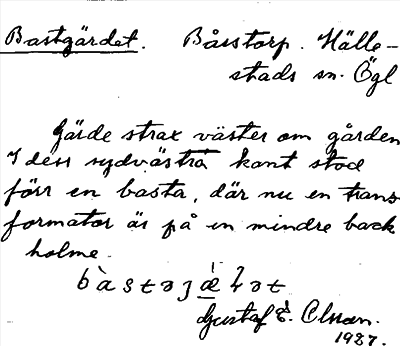 Bastgärdet. Bårstorp. Hälle-
stads sn. Ögl
Gärde strax väster om gården
I dess sydvästra kant stod
förr en basta, där nu en trans-
formator är på en mindre back
holme.
Gustaf E. Olsson.
1927.